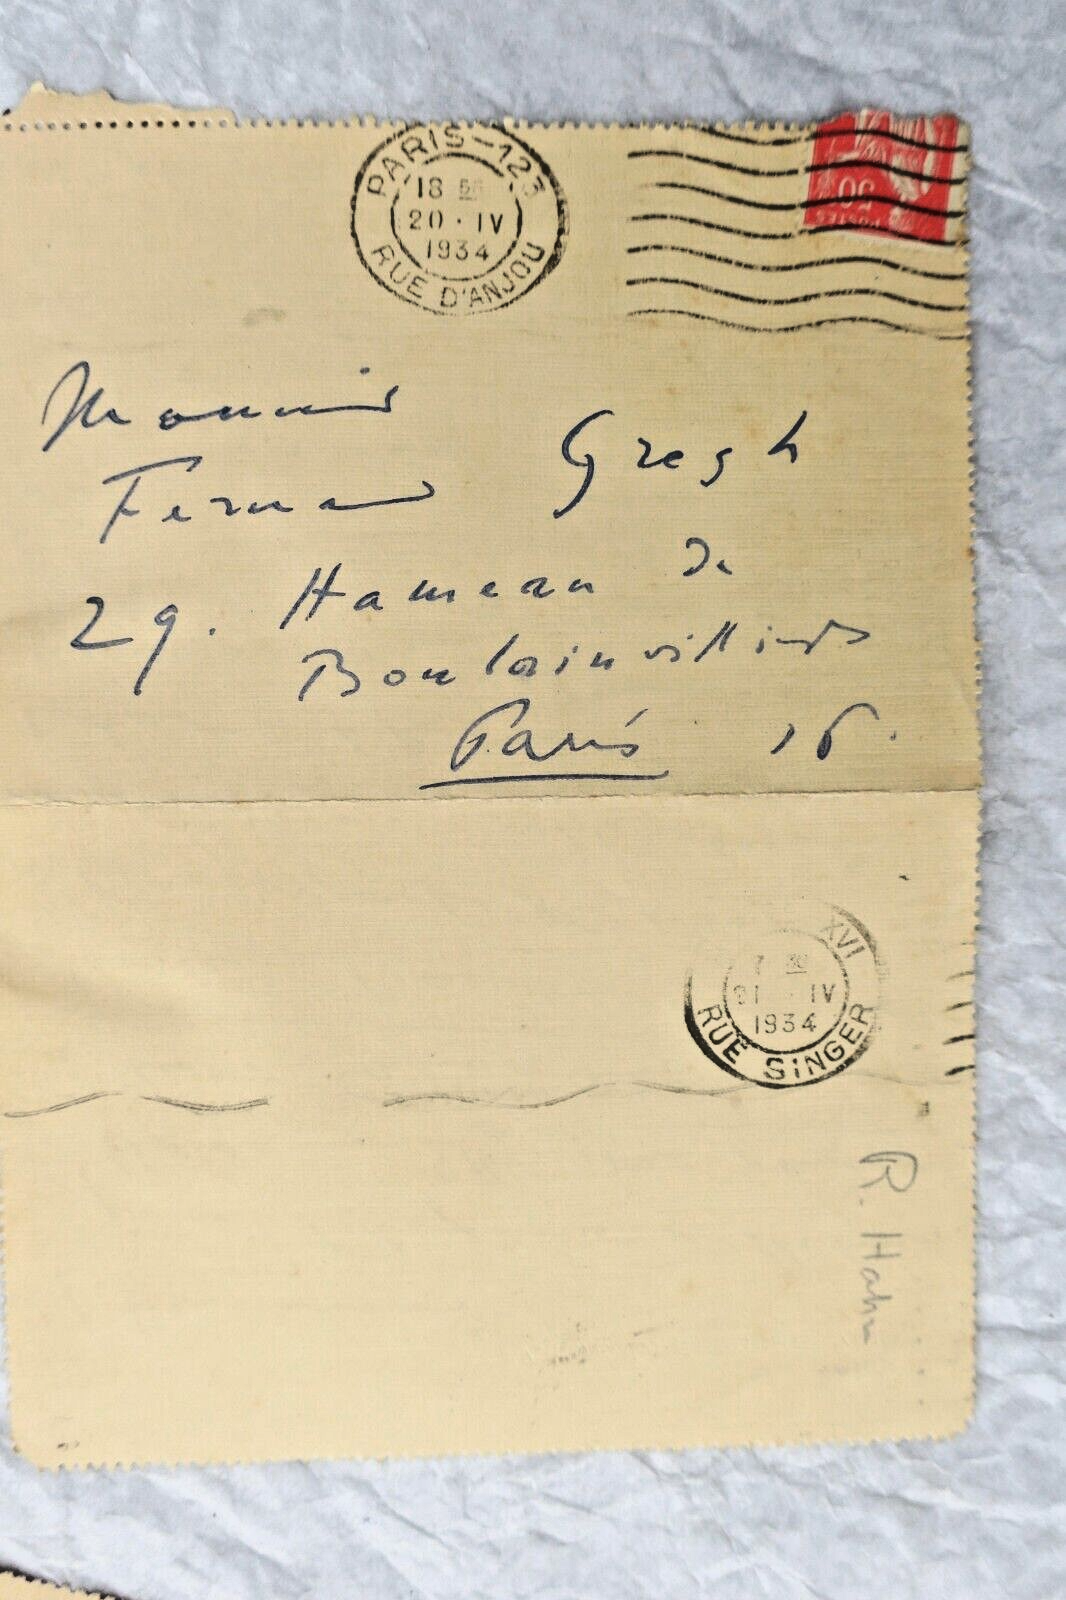 PARIS-123
18 5
20 · IV
1934
RUE D'ANJOU
50
POSTES
Monsieur
Fernand Gregh
29. Hameau de
Boulainvilliers
Paris 16.
XVI
7 30
21 · IV
1934
RUE SINGER
R. Hahn